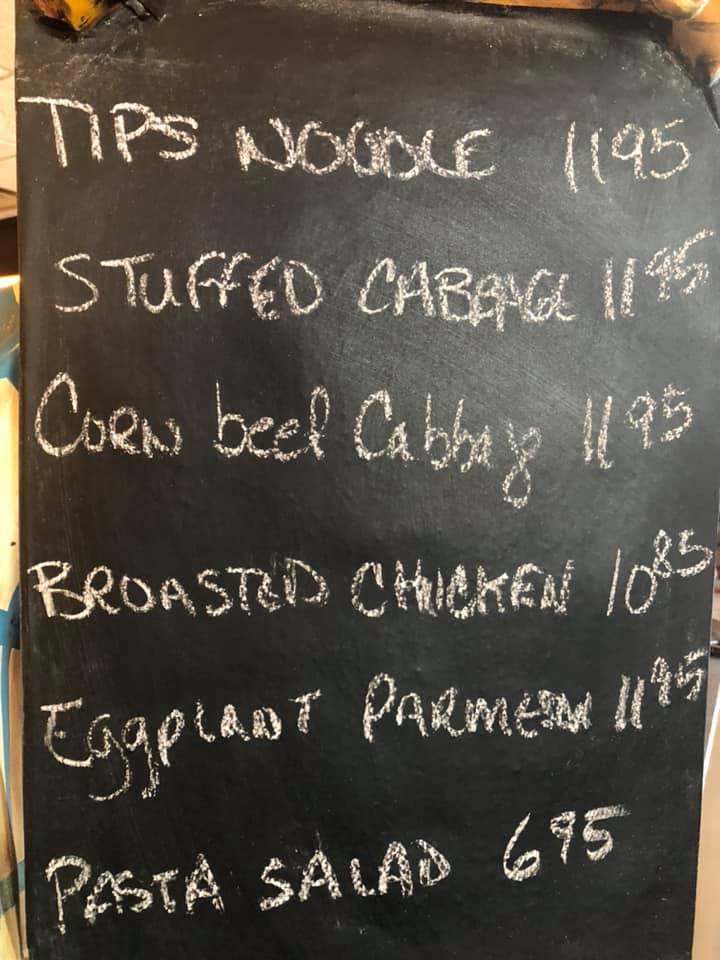 TIPS NOODLE 1195
STUFFED CABBAGE 1195
CORN beef Cabbag 1195
BROASTED CHICKEN 1085
EggplANT PARMESAN 1195
PASTA SALAD 695